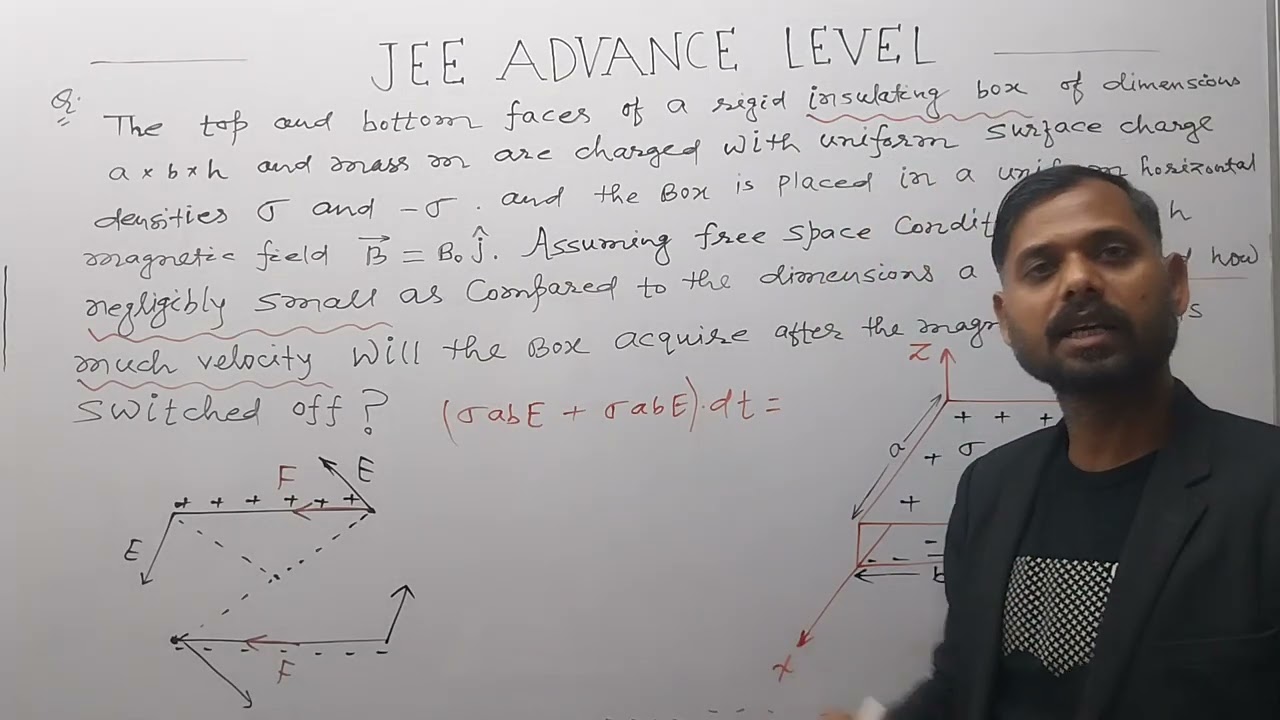 JEE ADVANCE LEVEL
Q:
The top and bottom faces of a rigid insulating box of dimensions
a × b × h and mass m are charged with uniform surface charge
densities σ and -σ. and the Box is placed in a horizontal
magnetic field B⃗ = B₀ ĵ. Assuming free space h
negligibly small as Compared to the dimensions a how
much velocity will the Box acquire after the
switched off? (σabE + σabE).dt =
Z
+ + +
a + σ
+
- - -
b
X
F E
+ + + + + +
E
F
- - - - - -